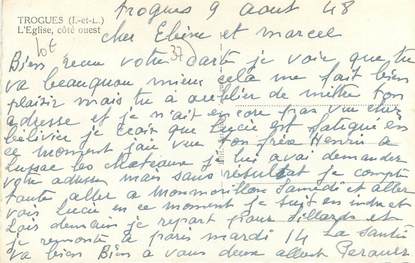 TROGUES (I.-et-L.)
L'Eglise, côté ouest
trogues 9 aout 48
cher Ebène et marcel
Bien recue votre carte je voie que tu
va beauquou mieu cela me fait bien
plaisir mais tu à oublier de mettre ton
adresse et je n'ait encore pas vu cher
je croit que Lucie est fatigué en
ce moment jaie vue ton frère Henrie a
Lussac les chateaux je lui avai demander
votre adresse mais sans resultat je compte
aller a monmorillon Samedi et aller
voir Lucie en ce moment je suit en indre et
Loir demain je repart pour et
je remonte a paris mardi 14 La santé
va bien Bien à vous deux albert